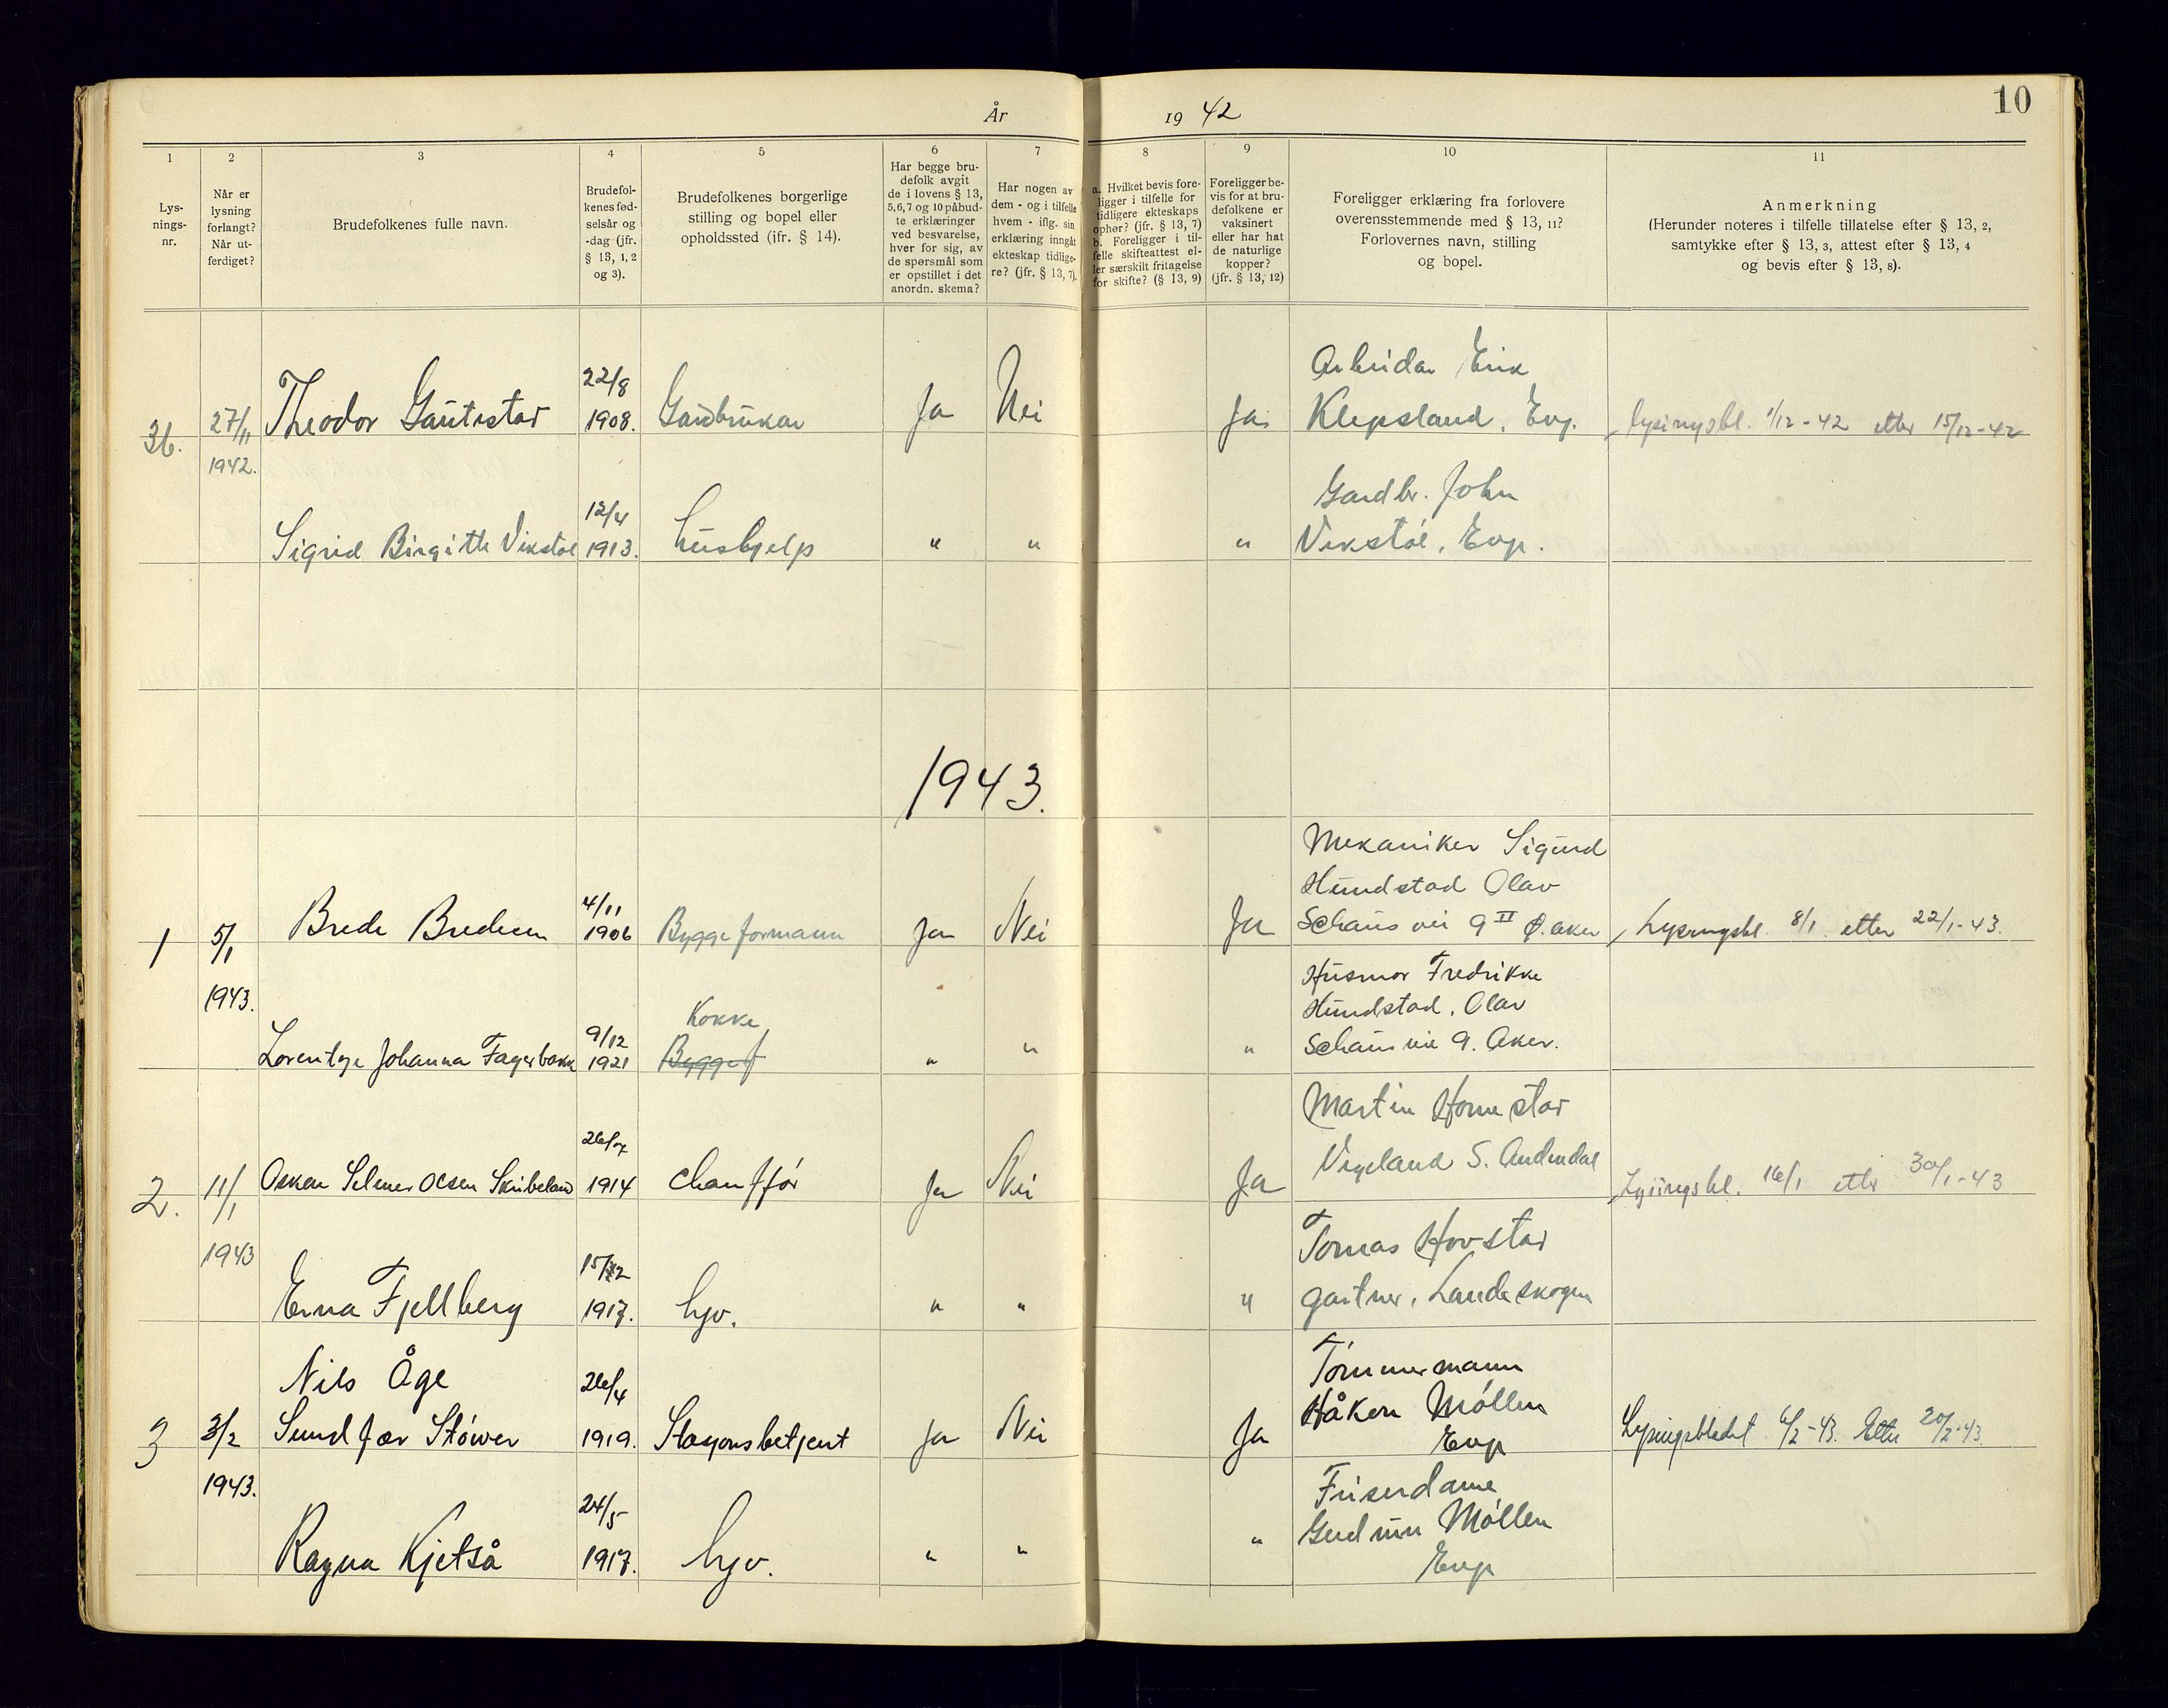 År 1942
10
1
2
3
4
5
6
7
8
9
10
11
Lys-
nings-
nr.
Når er
lysning
forlangt?
Når ut-
ferdiget?
Brudefolkenes fulle navn.
Brudefol-
kenes fød-
selsår og
-dag (jfr.
§ 13, 1, 2
og 3).
Brudefolkenes borgerlige
stilling og bopel eller
opholdssted (ifr. § 14).
Har begge bru-
defolk avgit
de i lovens § 13,
5,6,7 og 10 påbud-
te erklæringer
ved besvarelse,
hver for sig, av
de spørsmål som
er opstillet i det
anordn. skema?
Har nogen av
dem - og i tilfelle
hvem - iflg. sin
erklæring inngåt
ekteskap tidlige-
re? (jfr. § 13, 7).
a. Hvilket bevis fore-
ligger i tilfelle for
tidligere ekteskaps
ophør? (jfr. § 13, 7)
b. Foreligger i til-
felle skifteattest el-
ler særskilt fritagelse
for skifte? (§ 13, 9)
Foreligger be-
vis for at bru-
defolkene er
vaksinert
eller har hat
de naturlige
kopper?
(jfr. § 13, 12)
Foreligger erklæring fra forlovere
overensstemmende med § 13, 11?
Forlovernes navn, stilling
og bopel.
Anmerkning
(Herunder noteres i tilfelle tillatelse efter § 13, 2,
samtykke efter § 13, 3, attest efter § 13, 4
og bevis efter § 13, 8).
36.
27/11
1942.
Theodor Gautestad
22/8
1908.
Gardbrukar
Ja
Nei
Ja
Arbeidar Erik
Klepsland, Evj.
lysingsbl. 1/12-42 etter 15/12-42
Sigrid Birgitte Vikstøl
12/4
1913.
Hushjelp
"
"
"
Gardbr. John
Vikstøl, Evje.
1943.
1
5/1
1943.
Brede Bredesen
4/11
1906
Byggeformann
Ja
Nei
Ja
Mekaniker Sigurd
Hundstad Olav
Schaus vei 9 II Ø. aker
Lysingsbl. 8/1 etter 22/1-43.
Lorentze Johanna Fagerbakk
9/12
1921
Kokke
Byggef
"
"
"
Husmor Fredrikke
Hundstad, Olav
Schaus vei 9. Aker.
2.
11/1
1943
Oskar Selmer Olsen Skribeland
26/7
1914
Chauffør
Ja
Nei
Ja
Martin Hornestad
Vigeland S. Audnedal
Lysingsbl. 16/1 etter 30/1-43
Erna Fjellberg
15/12
1917.
hjv.
"
"
"
Tomas Hovstad
gartner, Landeskogen
3
3/2
1943.
Nils Åge
Sundfær Støwer
26/4
1919.
Stasjonsbetjent
Ja
Nei
Ja
Tømmermann
Håkon Møllen
Evje
Lysingsbladet 6/2-43. Etter 20/2-43.
Ragna Kjetså
24/5
1917.
hjv.
"
"
"
Friserdame
Gudrun Møllen
Evje